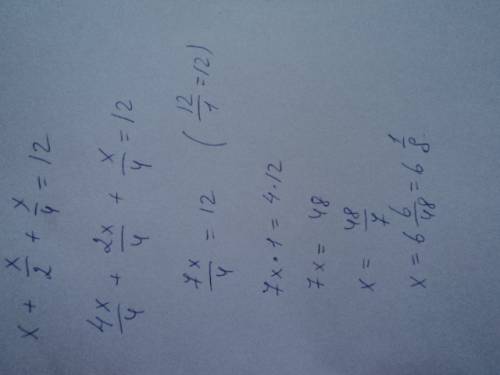 x + x/2 + x/4 = 12
4x/4 + 2x/4 + x/4 = 12
7x/4 = 12 (12/1 = 12)
7x · 1 = 4 · 12
7x = 48
x = 48/7
x = 6 6/48 = 6 1/8